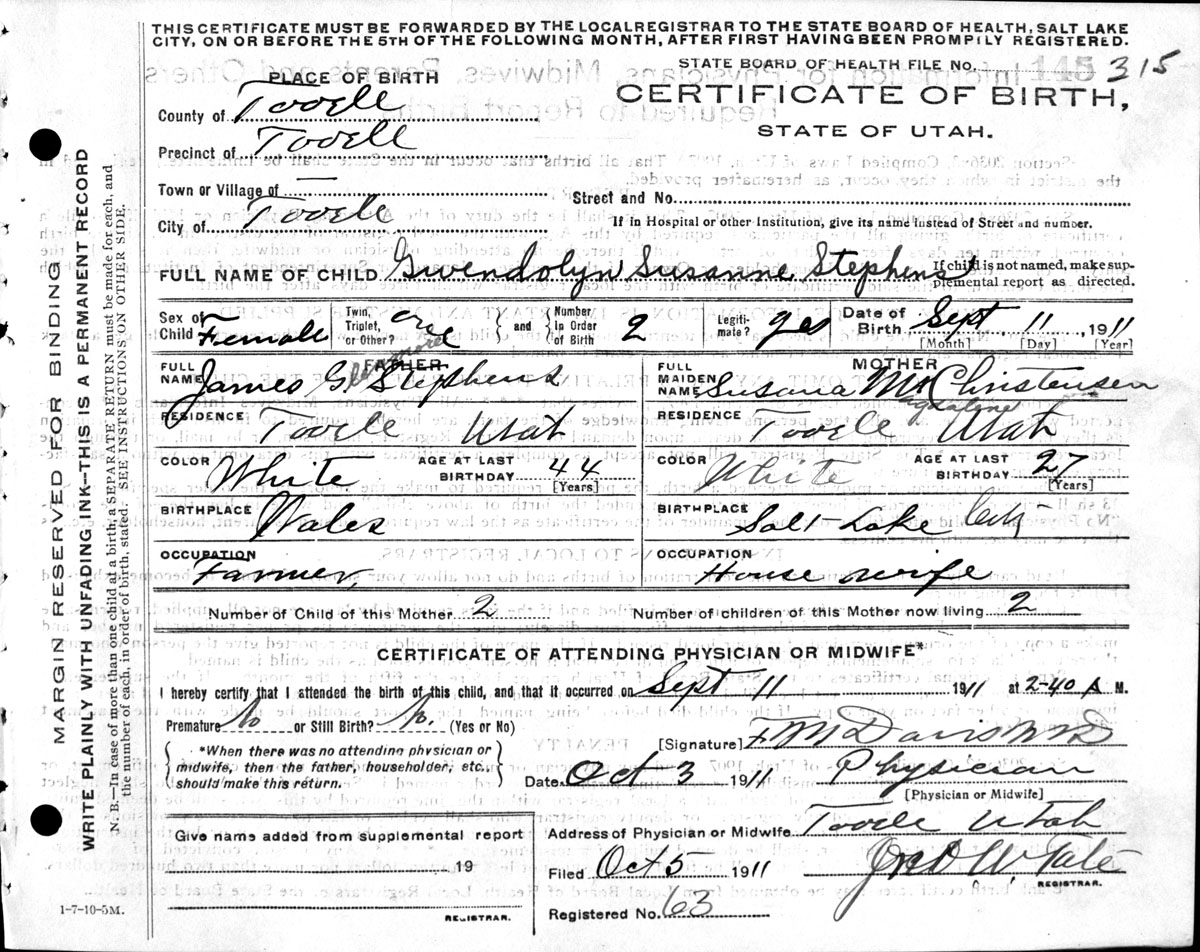 THIS CERTIFICATE MUST BE FORWARDED BY THE LOCAL REGISTRAR TO THE STATE BOARD OF HEALTH, SALT LAKE
CITY, ON OR BEFORE THE 5TH OF THE FOLLOWING MONTH, AFTER FIRST HAVING BEEN PROMPTLY REGISTERED.
STATE BOARD OF HEALTH FILE NO. 145 315
PLACE OF BIRTH
CERTIFICATE OF BIRTH,
STATE OF UTAH.
County of Tooele
Precinct of Tooele
Town or Village of —
Street and No.
City of Tooele
If in Hospital or other Institution, give its name instead of Street and number.
FULL NAME OF CHILD Gwendolyn Susanne Stephens
If child is not named, make sup-
plemental report as directed.
Sex of Child Female
Twin, Triplet, or Other? one
and Number In Order of Birth 2
Legiti-mate? yes
Date of Birth Sept 11 1911
[Month] [Day] [Year]
FATHER
FULL NAME James G Stephens
RESIDENCE Tooele Utah
COLOR White
AGE AT LAST BIRTHDAY 44
[Years]
BIRTHPLACE Wales
OCCUPATION
Farmer,
MOTHER
FULL MAIDEN NAME Susana M Christensen
Magdalene
RESIDENCE Tooele Utah
COLOR White
AGE AT LAST BIRTHDAY 27
[Years]
BIRTHPLACE Salt-Lake City
OCCUPATION
House wife
Number of Child of this Mother 2
Number of children of this Mother now living 2
CERTIFICATE OF ATTENDING PHYSICIAN OR MIDWIFE*
I hereby certify that I attended the birth of this child, and that it occurred on Sept 11 1911 at 2-40 A M.
Premature No or Still Birth? No. (Yes or No)
*When there was no attending physician or
midwife, then the father, householder, etc.,
should make this return.
[Signature] F M Davis MD
Date Oct 3 1911 Physician
[Physician or Midwife]
Give name added from supplemental report
19
REGISTRAR.
Address of Physician or Midwife Tooele Utah
Filed Oct 5 1911 Jno W. Tate
REGISTRAR.
Registered No. 63
1-7-10-5M.
MARGIN RESERVED FOR BINDING
WRITE PLAINLY WITH UNFADING INK—THIS IS A PERMANENT RECORD
N. B.—In case of more than one child at a birth, a SEPARATE RETURN must be made for each, and
the number of each, in order of birth, stated. SEE INSTRUCTIONS ON OTHER SIDE.